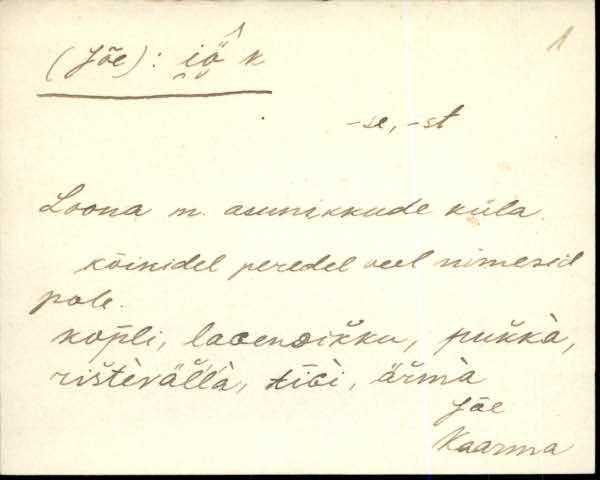 (Jõe): iö̭̂ k
1
-se, -st
Loona m. asunikkude küla.
kõinidel peredel veel nimesid
pole.
kop̄li, laoendikku, pukkà,
ristèvällà, tibi, ärmà
Jõe
Kaarma